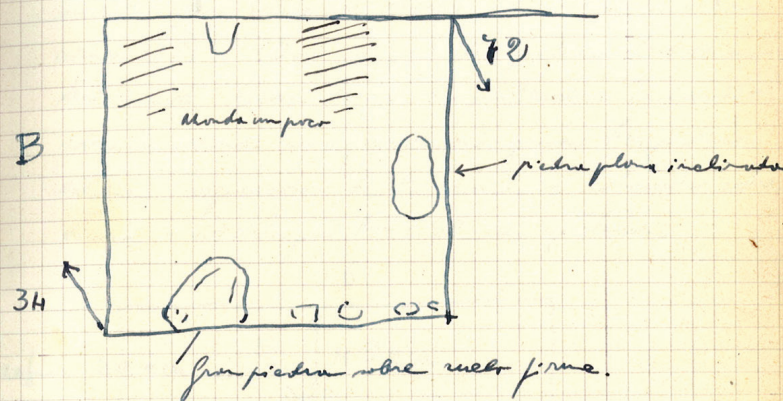 72
B
piedra plana inclinada
34
Gran piedra sobre suelo firme.